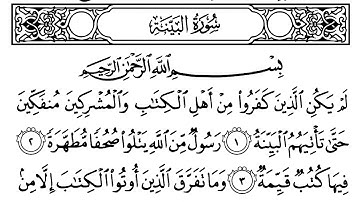 سُورَةُ البَيِّنَةِ
بِسْمِ اللَّهِ الرَّحْمَٰنِ الرَّحِيمِ
لَمْ يَكُنِ الَّذِينَ كَفَرُوا مِنْ أَهْلِ الْكِتَابِ وَالْمُشْرِكِينَ مُنفَكِّينَ
حَتَّىٰ تَأْتِيَهُمُ الْبَيِّنَةُ ١ رَسُولٌ مِّنَ اللَّهِ يَتْلُوا صُحُفًا مُّطَهَّرَةً ٢
فِيهَا كُتُبٌ قَيِّمَةٌ ٣ وَمَا تَفَرَّقَ الَّذِينَ أُوتُوا الْكِتَابَ إِلَّا مِنۢ